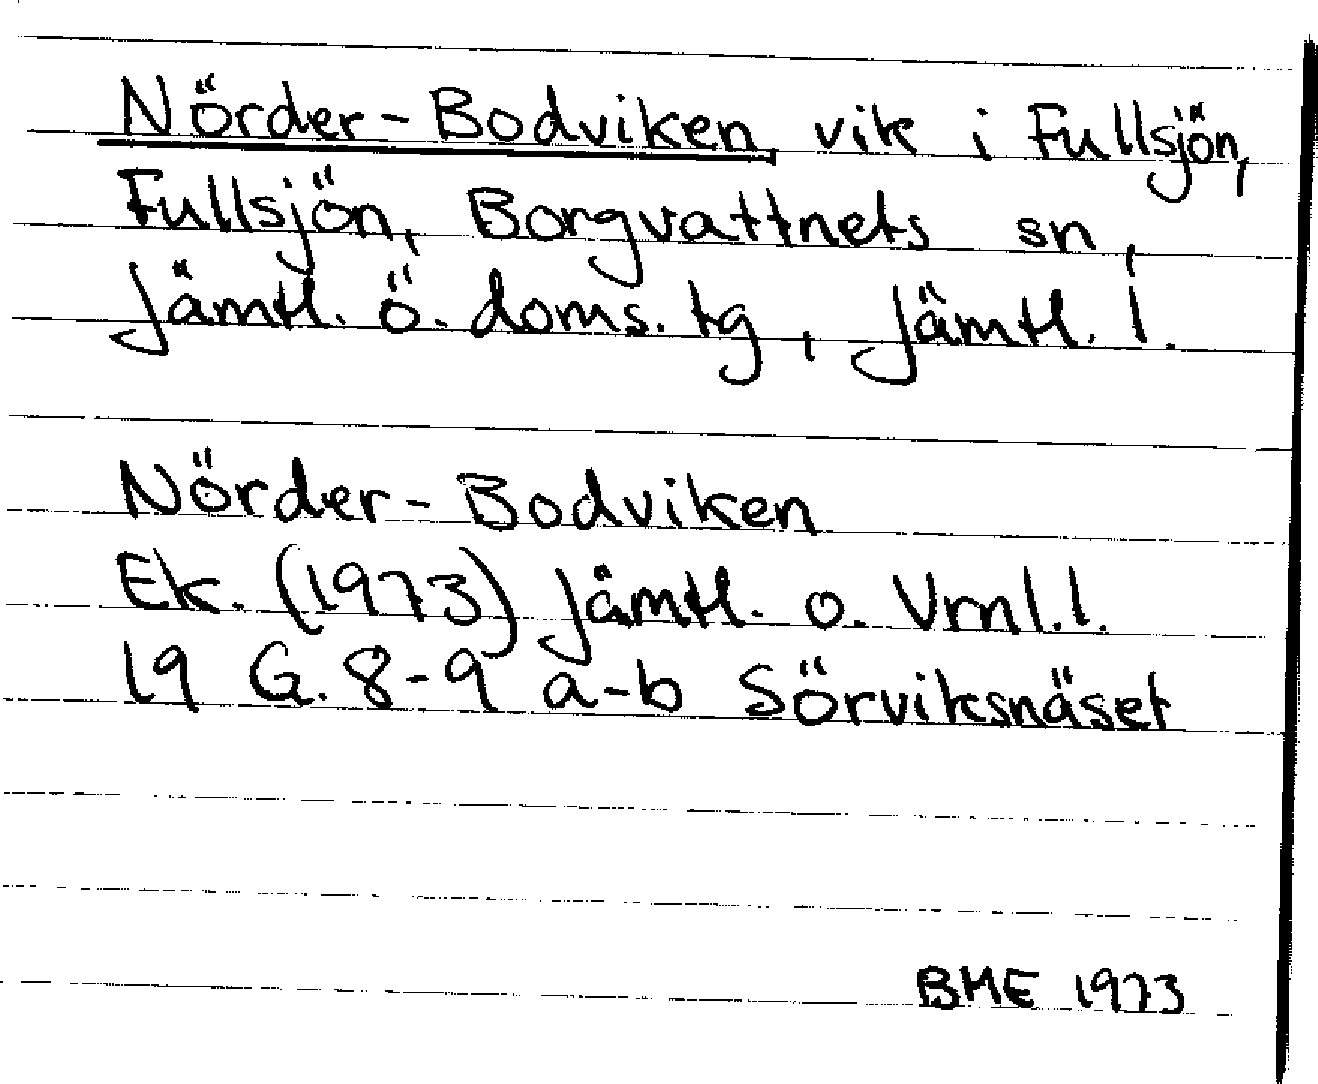 Nörder-Bodviken, vik i Fullsjön,
Fullsjön, Borgvattnets sn,
Jämtl. ö. doms. tg, Jämtl. l.
Nörder-Bodviken
Ek. (1973) Jämtl. o. Vrnl. l.
19 G. 8-9 a-b Sörviksnäset
BME 1973